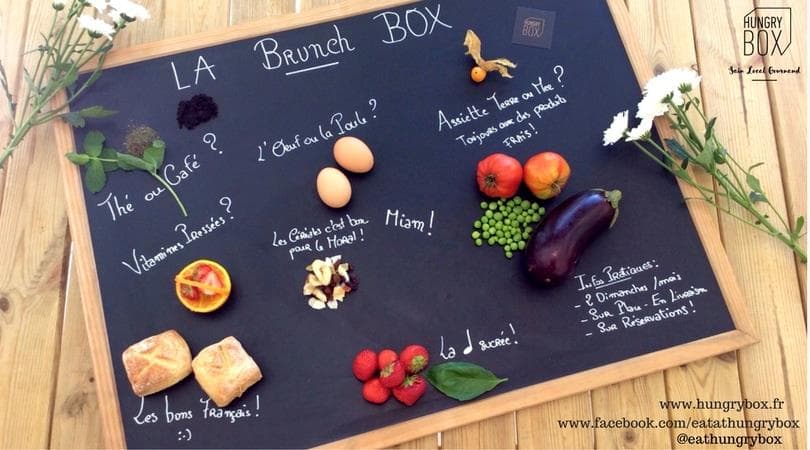 LA BRUNCH BOX
HUNGRY
BOX
HUNGRY
BOX
Sain Local Gourmand
Thé ou Café ?
L'Oeuf ou la Poule ?
Assiette Terre ou Mer ?
Toujours avec des produits
FRAIS !
Vitamines Pressées ?
Les Céréales c'est bon
pour le Moral !
Miam !
Infos Pratiques :
- 2 Dimanches / mois
- Sur Place - En Livraison
- Sur Réservations !
La ♩ sucrée !
Les bons Français !
:-)
www.hungrybox.fr
www.facebook.com/eatathungrybox
@eathungrybox